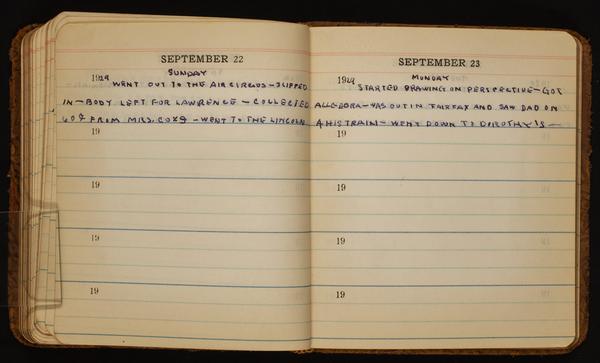 SEPTEMBER 22
SUNDAY
1929
WENT OUT TO THE AIR CIRCUS - SLIPPED
IN - BODY LEFT FOR LAWRENCE - COLLECTED
60¢ FROM MRS. COX - WENT TO THE LINCOLN
19
19
19
19
SEPTEMBER 23
MONDAY
1929
STARTED DRAWING ON PERSPECTIVE - GOT
ALGEBRA - WAS OUT IN FAIRFAX AND SAW DAD ON
HIS TRAIN - WENT DOWN TO DOROTHY'S -
19
19
19
19